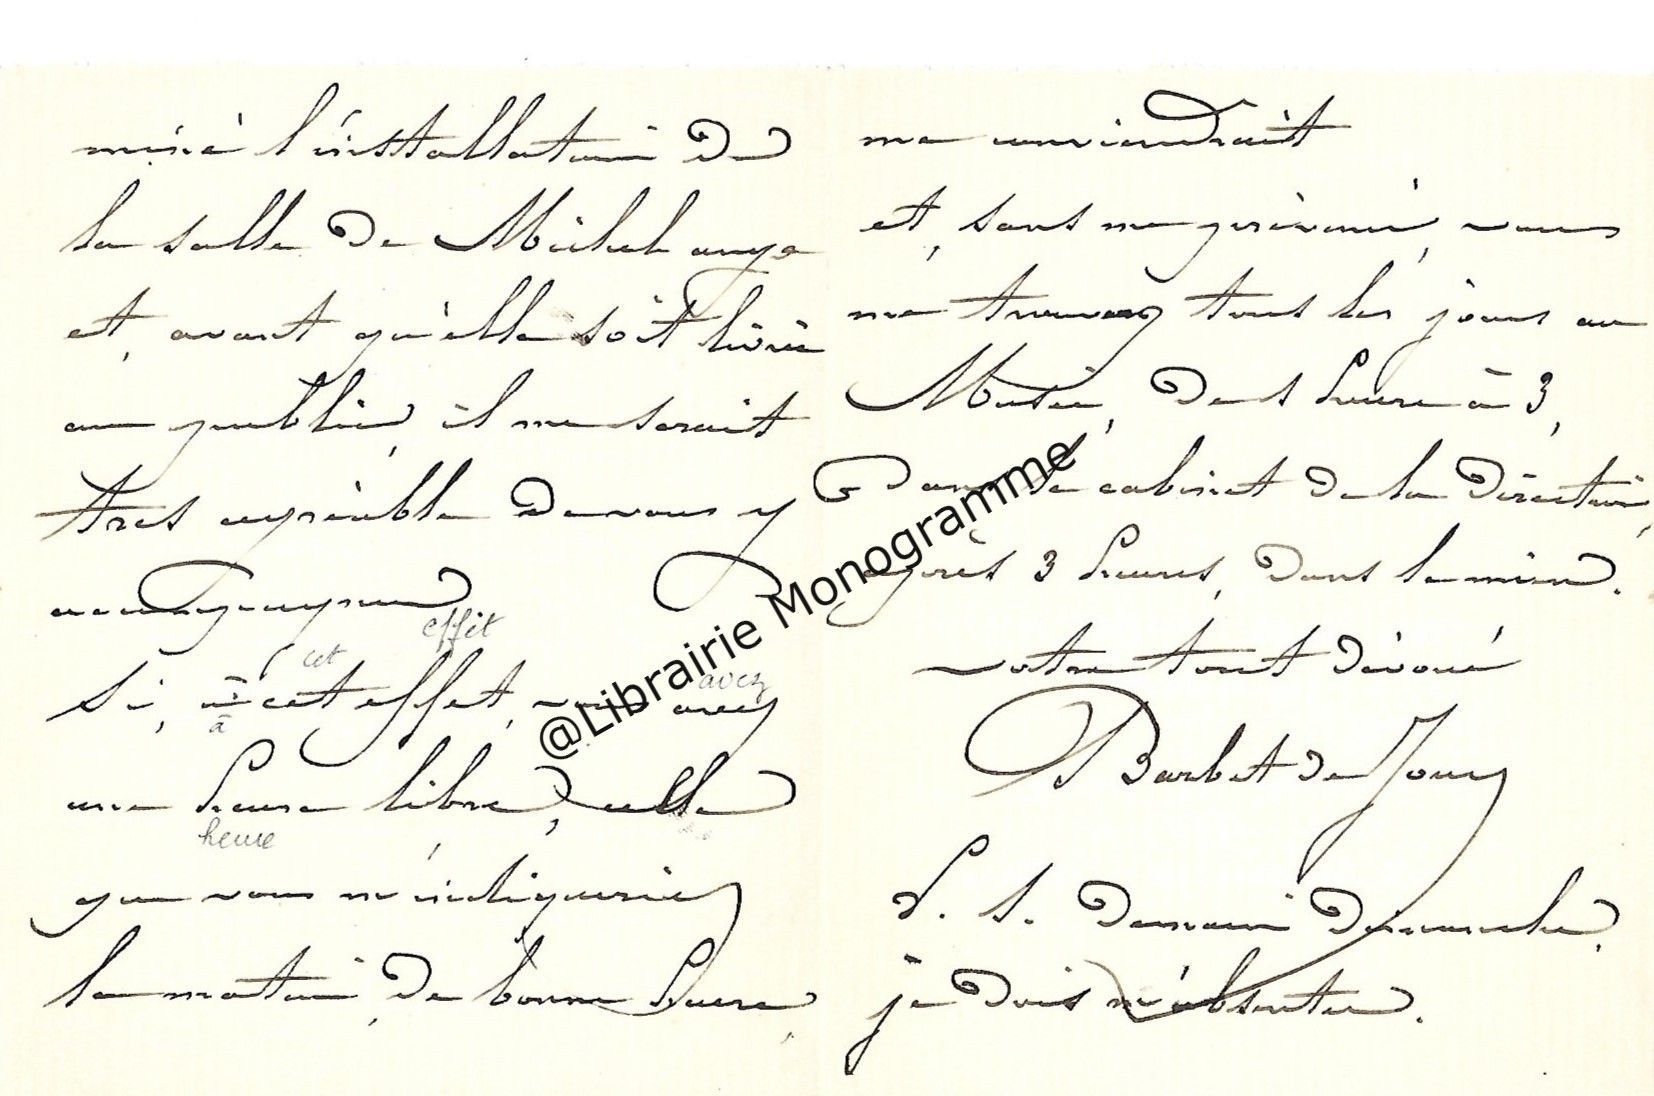 miné l'installation de
la salle de Michel ange
et, avant qu'elle soit livrée
au public, il me serait
très agréable de vous y
accompagner
effet
cet
Si, à cet effet, vous avez
avez
à
une heure libre, celle
heure
que vous m'indiqueriez
le matin, de bonne heure,
me conviendrait
et, sans me prévenir, vous
me trouvez tous les jours au
Musée, de 1 heure à 3,
dans le cabinet de la Direction,
après 3 heures, dans le mien.
votre tout dévoué
Barbet de Jouy
P. S. Demain Dimanche,
je dois m'absenter.
@Librairie Monogramme